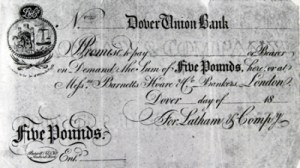 Dover Union Bank
No
I Promise to pay or Bearer
on Demand the Sum of Five Pounds, here or at
Messrs Barnetts Hoare & Co. Bankers, London
Dover day of 18
For Latham & Compy.
Five Pounds
Ent.